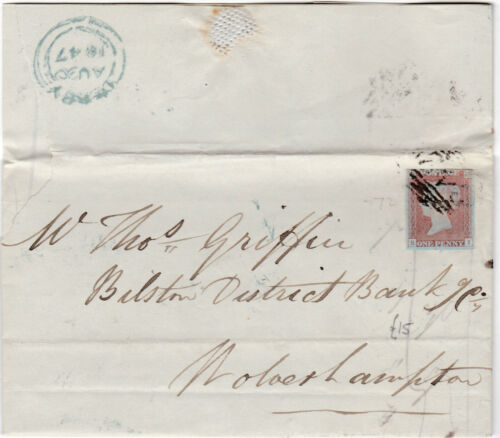 DERBY
AU 30
1847
Mr Thos Griffin
Bilston District Bank &c.
£15
Wolverhampton
ONE PENNY